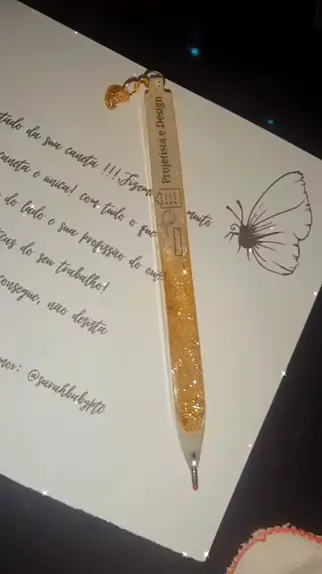 tado da sua caneta !!! Fizemos muito
caneta e unica! com tudo o que
do lado e sua profissão do outro
icas do seu trabalho!
consegue, não desista
@sarahbabypte
Projetista e Design